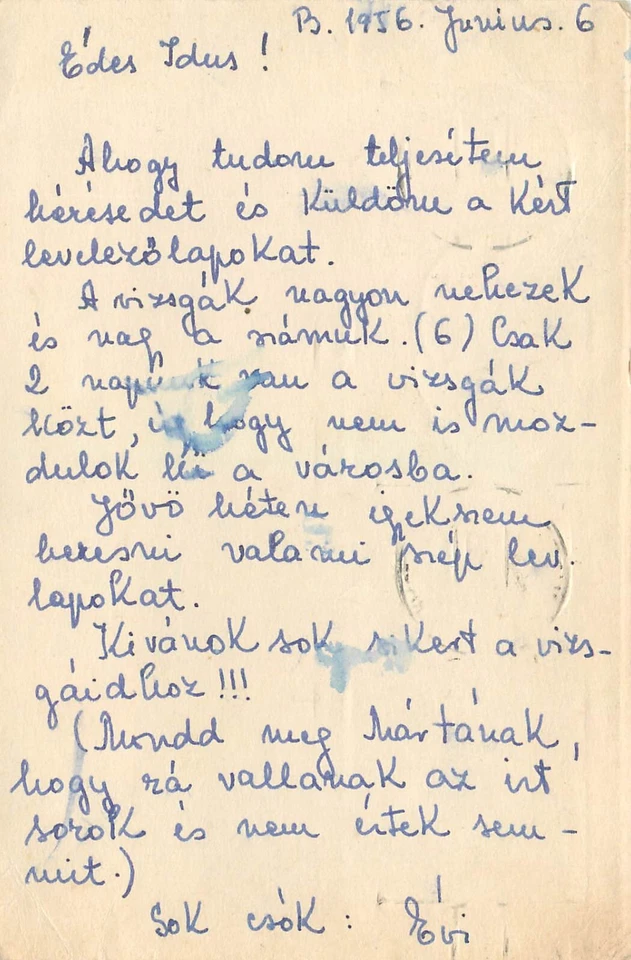 B. 1956. Junius. 6
Édes Idus!
Ahogy tudom teljesítem
kérésedet és Küldöm a Kért
levelezőlapokat.
A vizsgák nagyon nehezek
és nagy a számuk. (6) Csak
2 napunk van a vizsgák
közt, úgy hogy nem is moz-
dulok ki a városba.
Jövö héten igekszem
keresni valami szép lev.
lapokat.
Kivánok sok sikert a vizs-
gáidhoz!!!
(Mondd meg Mártának,
hogy rá vallanak az irt
sorok és nem értek sem-
mit.)
Sok csók: Évi